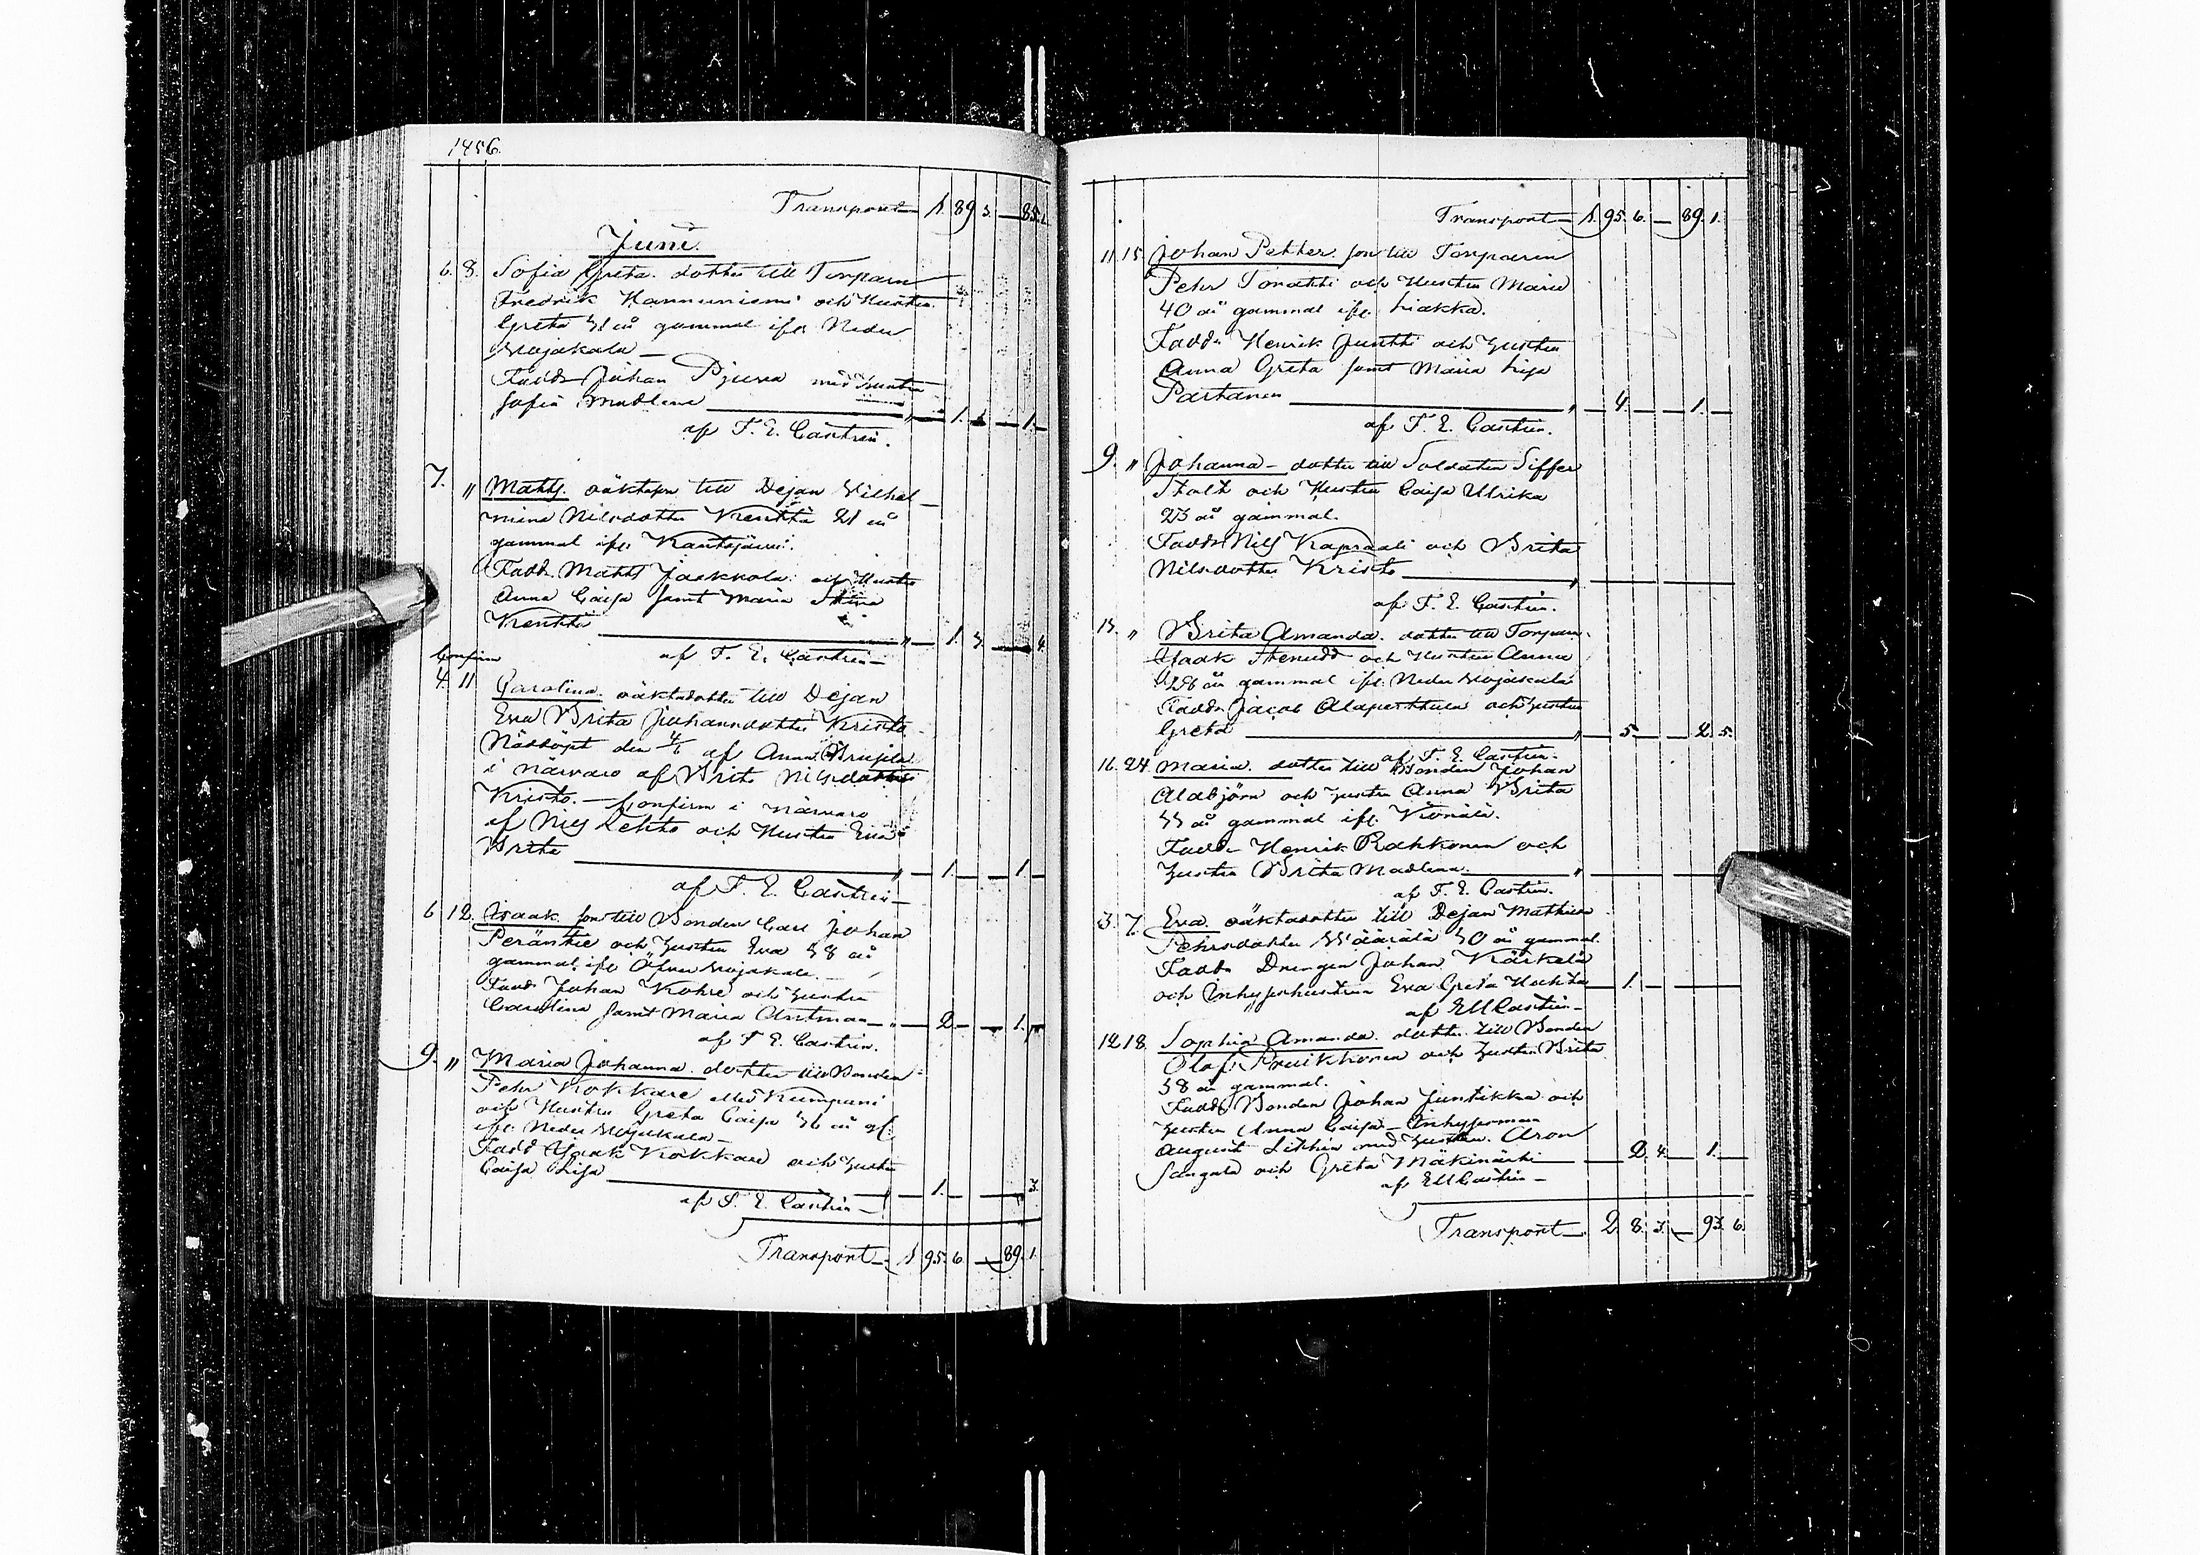 1856.
Transport 1. 89 3. — 85.
Juni.
6. 8. Sofia Greta. dotter till Torparn
Fredrik Hannuniemi och Hustru
Greta 31 år gammal ifr. Neder
Wojakala —
Fadd. Johan Pjuva med hustru
Sofia Madlena — " — 1. — 1. —
af F. E. Castrén.
7. " Matts. oäkta son till Dejan Vilhel
mina Nilsdotter Kenttä 21 år
gammal ifr. Kantojärvi.
Fadd. Matts Jaakkola och Hustru
Anna Caisa samt Maria Stina
Kenttä — " — 1. 3. — 4.
af F. E. Castrén —
Confirm
4. 11 Carolina. oäkta dotter till Dejan
Eva Brita Johansdotter Kristo
Nöddöpt den 4/6 af Anna
i närvaro af Brita Nilsdotter
Kristo. — Confirm i närvaro
af Nils Lehto och Hustru Eva
Brita — " — 1. — 1. —
af F. E. Castrén —
6 12. Isaak. son till Bonden Carl Johan
Peräntie och hustru Eva 38 år
gammal ifr Öfver Wojakala. —
Fadd. Johan Kohre och hustru
Carolina samt Maria — " — 2 — 1.
af F. E. Castrén.
9. " Maria Johanna. dotter till Bonden
Pehr Kokkare eller Kumpuni
och Hustru Greta Caisa 36 år gl.
ifr. Neder Wojakala —
Fadd Isaak Kokkare och hustru
Caisa Lisa — 1. — 3.
af F. E. Castrén —
Transport — 1 95. 6 — 89. 1.
Transport — 1. 95. 6. — 89. 1.
11. 15. Johan Petter. son till Torparen
Pehr och Hustru Maria
40 år gammal ifr. Liakka.
Fadd. Henrik Juntti och hustru
Anna Greta samt Maria Lisa
Partanen — " — 4. — 1. —
af F. E. Castrén.
9. " Johanna — dotter till Soldaten Siffer
Stolt och Hustru Caisa Ulrika
23 år gammal.
Fadd. Nils Kapraali och Brita
Nilsdotter Kristo — "
af F. E. Castrén.
15. " Brita Amanda. dotter till Torparn
Isaak Stenudd och Hustru Anna
28 år gammal ifr. Neder Wojakala
Fadd. Jacob Alaperttula och hustru
Greta — " — 5. — 2. 5.
af F. E. Castrén.
16. 24. Maria. dotter till Bonden Johan
Alabjörn och hustru Anna Brita
33 år gammal ifr.
Fadd. Henrik Rahkonen och
hustru Brita Madlena. — "
af F. E. Castrén.
3. 7. Eva oäkta dotter till Dejan Mathilda
Pehrsdotter Wäärälä 30 år gammal.
Fadd. Drengen Johan Kärkelä
och Inhyseshustrun Eva Greta Huhta — 1. —
af EMCastrén —
12 18. Sophia Amanda. dotter till Bonden
Olof Pruikkonen och hustru Brita
38 år gammal.
Fadd. Bonden Johan Juntikka och
hustru Anna Caisa — Inhysesman
August med hustru. Aron
Sangala och Greta Mäkinärhi — 2. 4. — 1. —
af EMCastrén —
Transport — 2. 8. 3. — 93. 6.